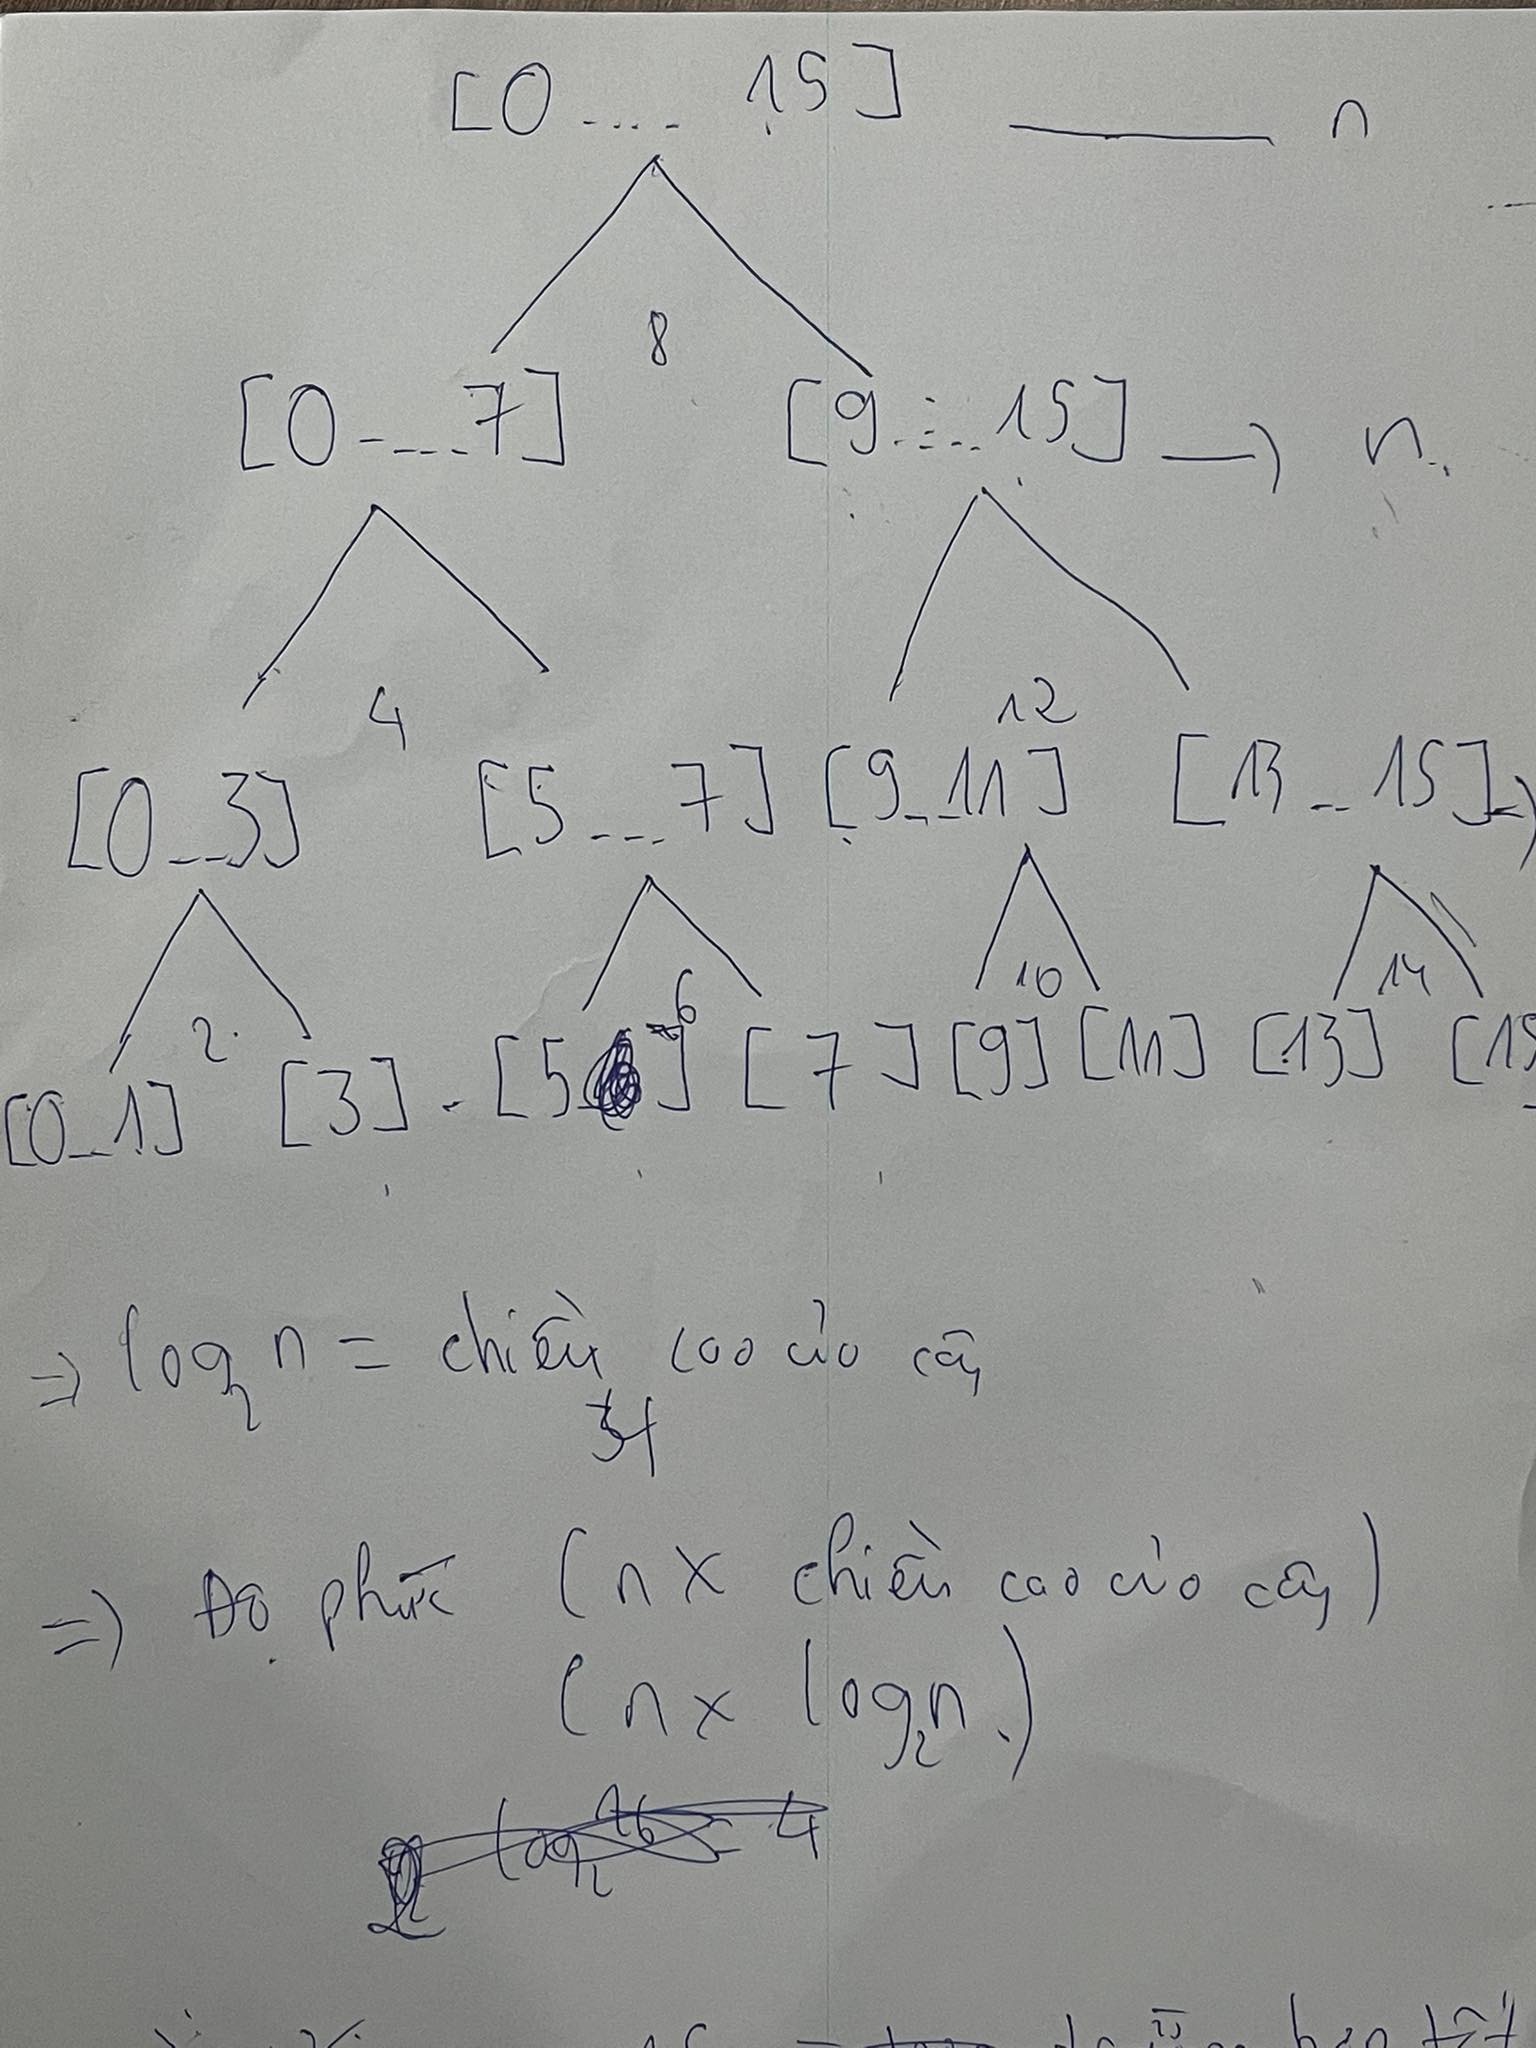 [0 .... 15] —— n
8
[0 - ... 7] [9 .... 15] → n
4 12
[0 .. 3] [5 ... 7] [9 .. 11] [13 .. 15] →
2 6 10 14
[0 .. 1] [3] [5] [7] [9] [11] [13] [15
⇒ log₂ n = chiều cao của cây
⇒ Độ phức (n x chiều cao của cây)
(n x log₂n.)
log₂ 16 = 4